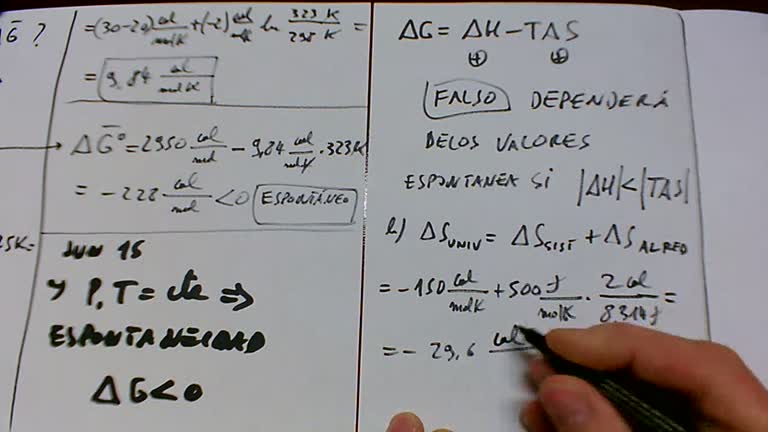 G ?
=(30-20) cal/molK +(-2) cal/molK ln 323 K/298 K =
= 9,84 cal/molK
ΔG° = 2950 cal/mol - 9,84 cal/molK · 323K
= -228 cal/mol <0 ESPONTÁNEO
25K=
JUN 15
P, T = cte ⇒
ESPONTANEIDAD
ΔG<0
ΔG = ΔH - TΔS
⊕ ⊕
FALSO DEPENDERÁ
DE LOS VALORES
ESPONTANEA SI |ΔH|<|TΔS|
b) ΔS UNIV = ΔS SIST + ΔS ALRED
= -150 cal/molK + 500 J/molK · 2 cal/8,314 J =
= - 29,6 cal